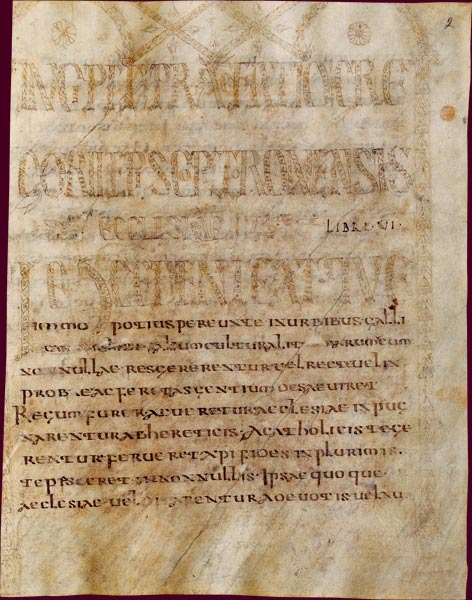 2
INCIPIT PRAEFATIO GRE
GORII EPS CEPI TRONENSIS
ECCLESIAE LIBRI VI
DECEDENTE ATQUE
immo potius pereunte in urbibus galli
cultura litterarum cum
nonnullae res gererentur vel recte vel in
probe ac feritas gentium desaeviret
Regum furor acueretur aeclesiae inpug
narentur ab hereticis, a catholicis tege
rentur ferveret xpi fides in plurimis.
tepesceret in nonnullis. Ipsae quoque
aeclesiae vel ditarentur a devotis vel nu